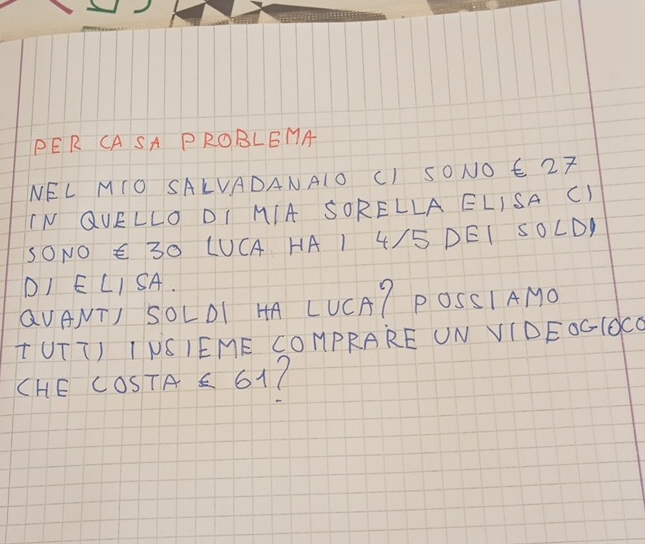 PER CASA PROBLEMA
NEL MIO SALVADANAIO CI SONO € 27
IN QUELLO DI MIA SORELLA ELISA CI
SONO € 30 LUCA HA I 4/5 DEI SOLDI
DI ELISA.
QUANTI SOLDI HA LUCA? POSSIAMO
TUTTI INSIEME COMPRARE UN VIDEOGIOCO
CHE COSTA € 61?